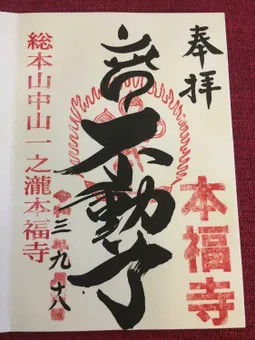 奉拝
本福寺
音不動了
令和三九十八
総本山中山一之瀧本福寺